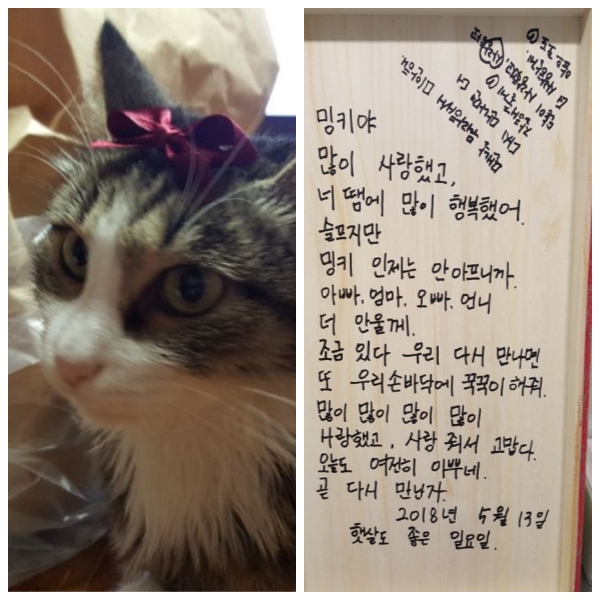 밍키야
많이 사랑했고,
너 땜에 많이 행복했어.
슬프지만
밍키 인제는 안아프니까.
아빠, 엄마. 오빠. 언니
더 안울게.
조금 있다 우리 다시 만나면
또 우리손바닥에 꾹꾹이 해줘.
많이 많이 많이 많이
사랑했고, 사랑 줘서 고맙다.
오늘도 여전히 이뿌네.
곧 다시 만나자.
2018년 5월 13일
햇살도 좋은 일요일.